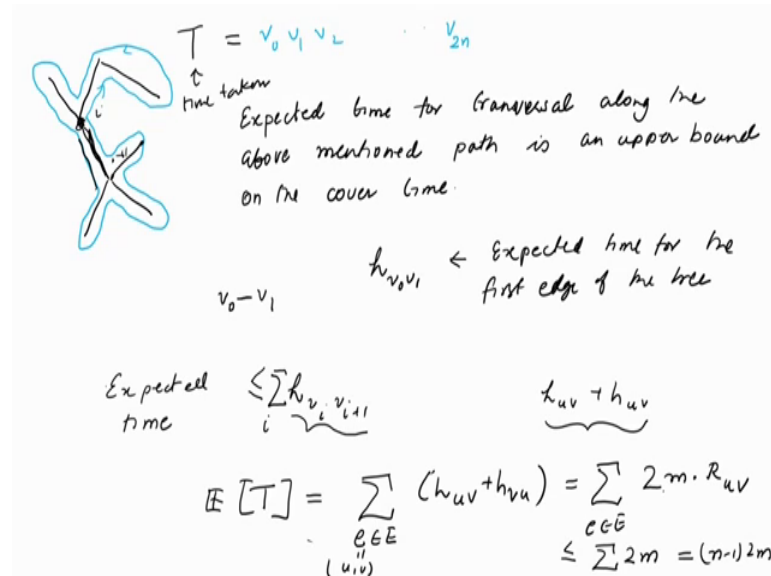 T = v₀ v₁ v₂ v₂ₙ
↑
time taken
i
i+1
Expected time for transversal along the
above mentioned path is an upper bound
on the cover time.
h_{v₀v₁} ← Expected time for the
first edge of the tree
v₀ – v₁
Expected time ≤ ∑_i h_{v_i v_{i+1}}
h_{uv} + h_{uv}
𝔼[T] = ∑_{e∈E} (h_{uv} + h_{vu}) = ∑_{e∈E} 2m·R_{uv}
"
(u,v)
≤ ∑ 2m = (n-1) 2m